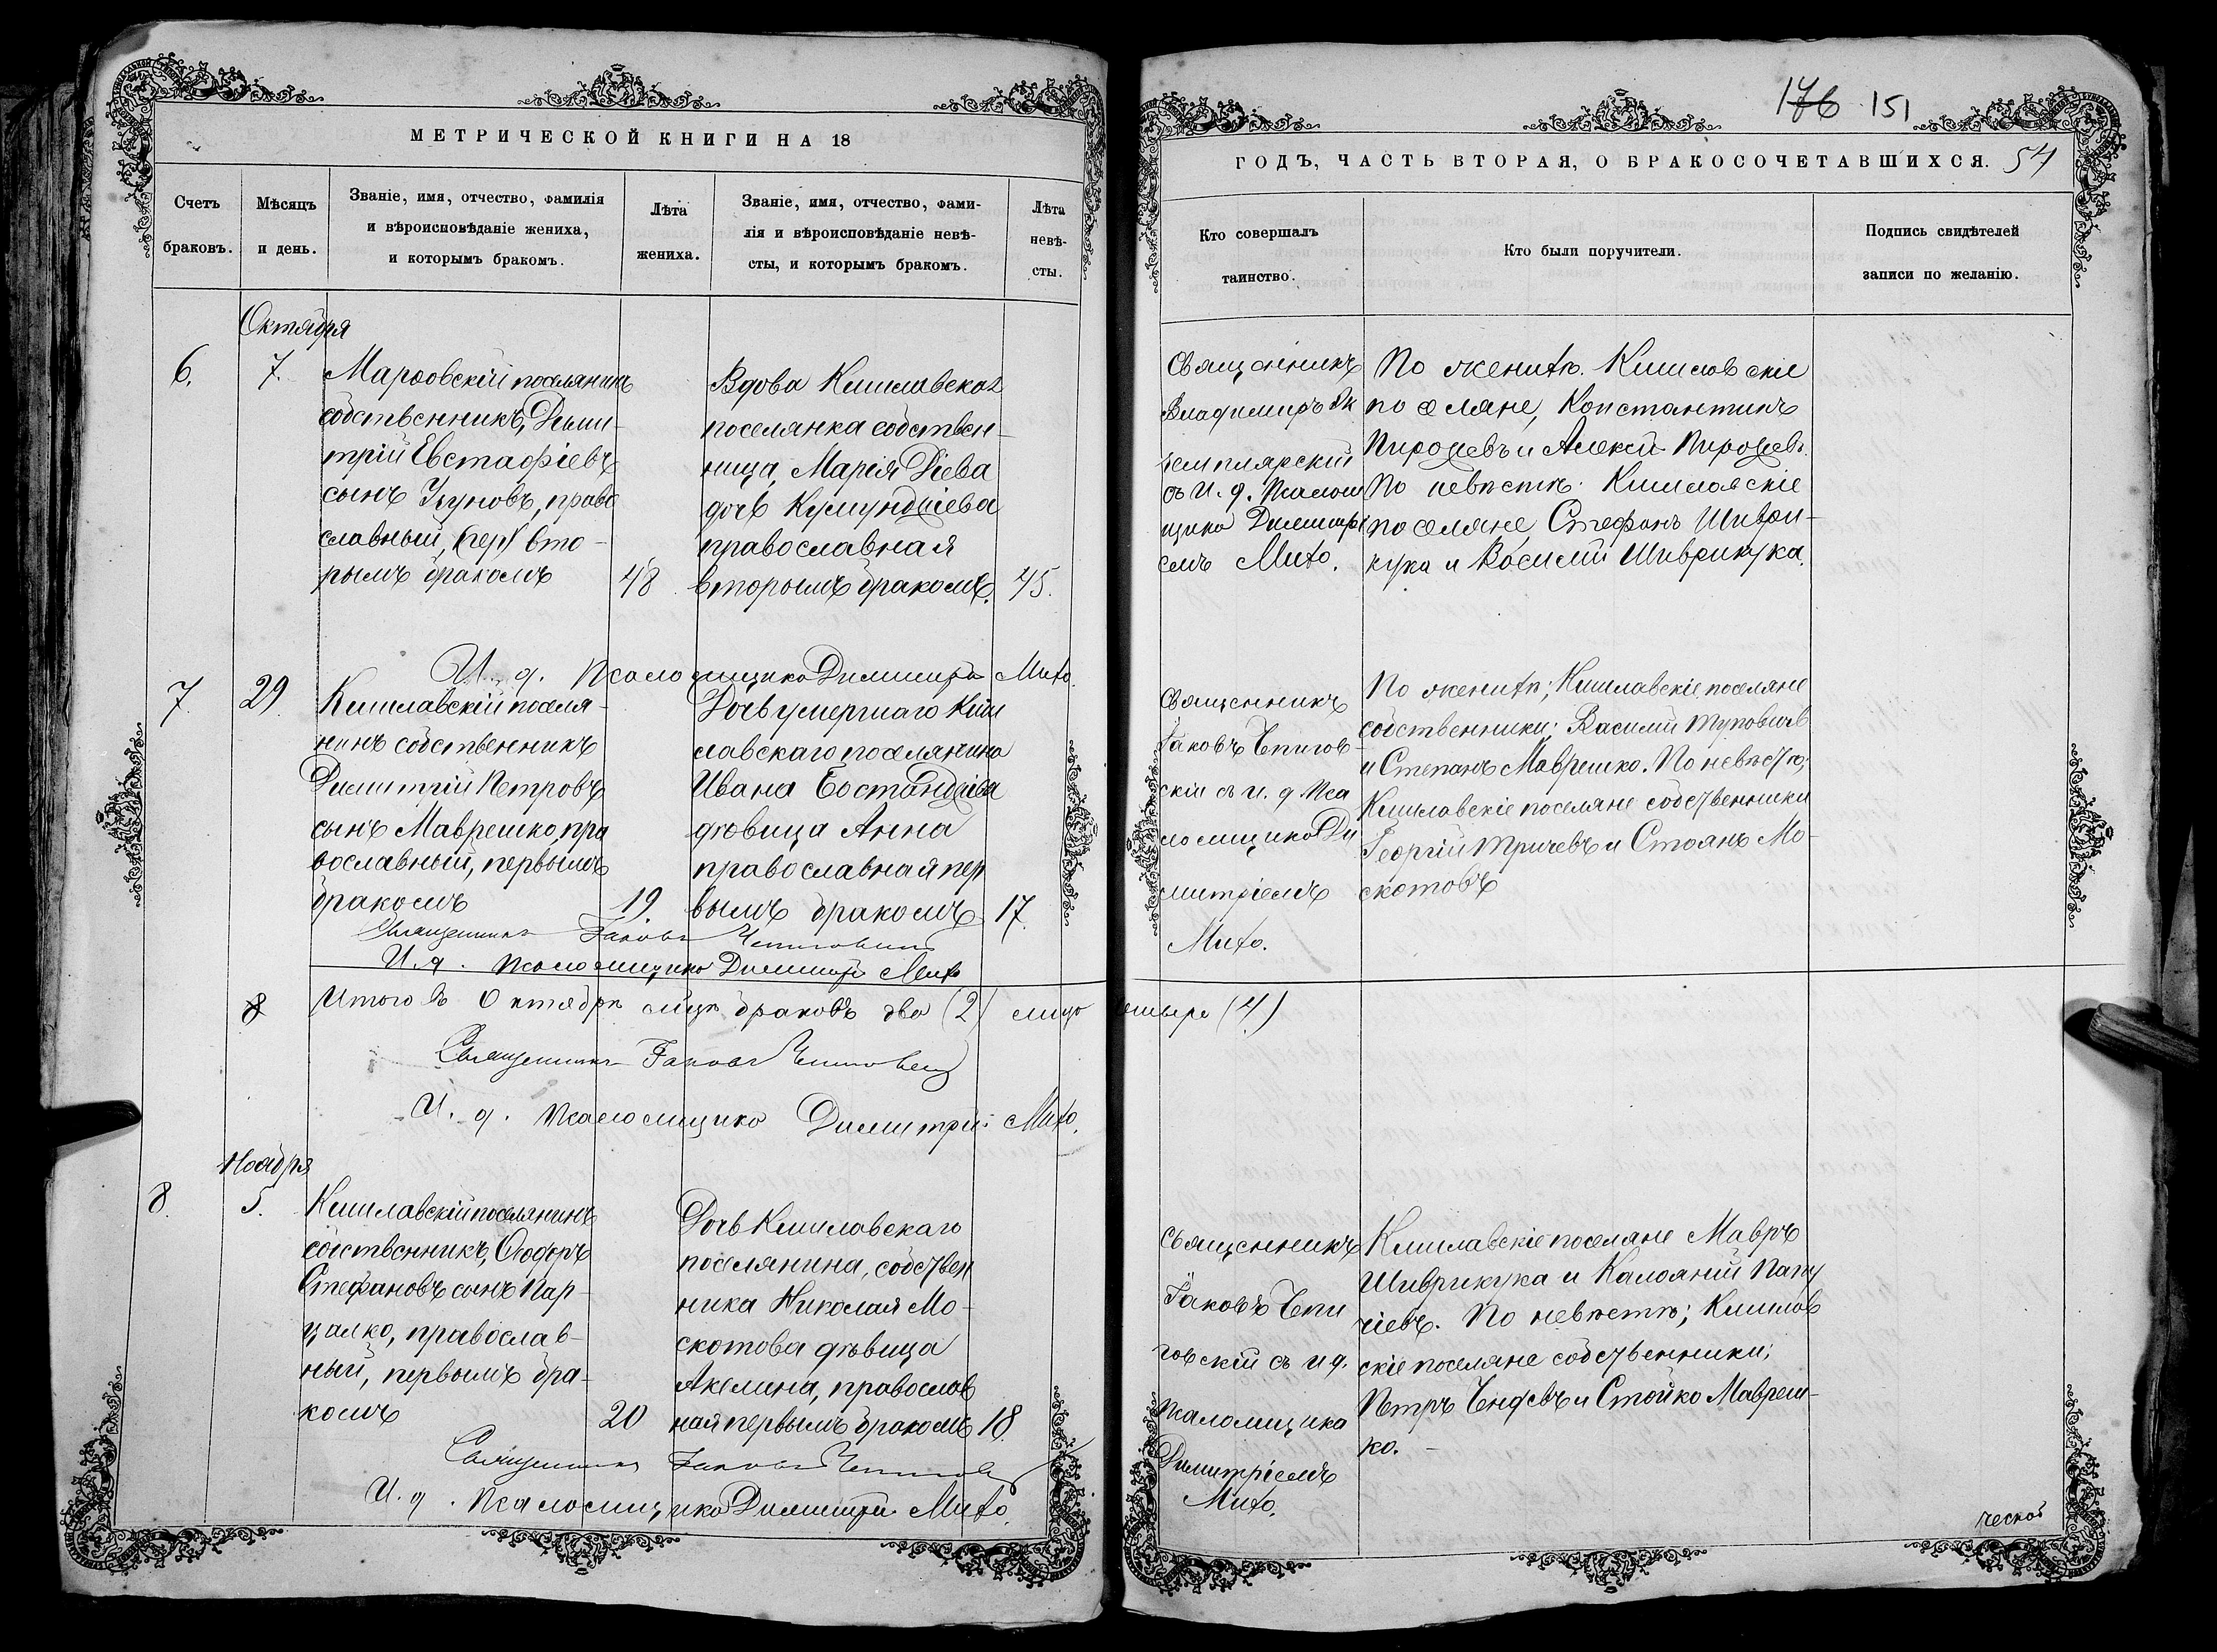 МЕТРИЧЕСКОЙ КНИГИ НА 18
Счетъ
браковъ.
Мѣсяцъ
и день.
Званіе, имя, отчество, фамилія
и вѣроисповѣданіе жениха,
и которымъ бракомъ.
Лѣта
жениха.
Званіе, имя, отчество, фами-
лія и вѣроисповѣданіе невѣ-
сты, и которымъ бракомъ.
Лѣта
невѣ-
сты.
Октября
6.
7.
Марфовскій поселянинъ
собственникъ, Дими-
трій Евстафіевъ
сынъ Узуновъ, право
славный, (пер) вто-
рымъ бракомъ
48
Вдова Кишлавская
поселянка собствен-
ница, Марія Діева
дочь Куюмджіева
православная
вторымъ бракомъ.
45.
И. д. Псаломщика Димитрій Мито.
7.
29.
Кишлавскій поселя-
нинъ собственникъ
Димитрій Петровъ
сынъ Маврешко, пра
вославный, первымъ
бракомъ
19.
Дочь умершаго Киш
лавскаго поселянина
Ивана Бостанджіева
дѣвица Анна
православная пер
вымъ бракомъ
17.
Священникъ Іаковъ Чепиговскій
И. д. Псаломщика Димитрій Мито
8
Итого въ Октябрѣ м-цѣ браковъ два (2) лицъ четыре (4)
Священникъ Іаковъ Чепиговскій
И. д. Псаломщика Димитрій Мито.
Ноября
8.
5.
Кишлавскій поселянинъ
собственникъ, Ѳеодоръ
Стефановъ сынъ Пар-
цалко, православ-
ный, первымъ бра-
комъ
20
Дочь Кишлавскаго
поселянина, собствен
ника Николая Мо-
скотова дѣвица
Акелина, православ
ная первымъ бракомъ
18.
Священникъ Іаковъ Чепиговскій
И. д. Псаломщика Димитрій Мито.
176 151
ГОДЪ, ЧАСТЬ ВТОРАЯ, О БРАКОСОЧЕТАВШИХСЯ. 54
Кто совершалъ
таинство.
Кто были поручители.
Подпись свидѣтелей
записи по желанію.
Священникъ
Владимиръ Эк
земплярскій
съ и. д. Псалом
щика Димитрі
емъ Мито.
По женихѣ. Кишлавскіе
поселяне, Константинъ
Пироževъ и Алексѣй
По невѣстѣ. Кишлавскіе
поселяне Стефанъ Шиври-
кука и Василій Шиврикука.
Священникъ
Іаковъ Чепигов-
скій съ и. д. Пса
ломщика Ди
митріемъ
Мито.
По женихѣ; Кишлавскіе поселяне
собственники; Василій
и Степанъ Маврешко. По невѣстѣ;
Кишлавскіе поселяне собственники
Георгій Тричевъ и Стоянъ Мо-
скотовъ
Священникъ
Іаковъ Чепи
говскій съ и д.
Псаломщика
Димитріемъ
Мито.
Кишлавскіе поселяне Мавръ
Шиврикука и Калояній Папу
чіевъ. По невѣстѣ; Кишлав
скіе поселяне собственники;
Петръ Бендевъ и Стойко Мавреш-
ко. –
ческой